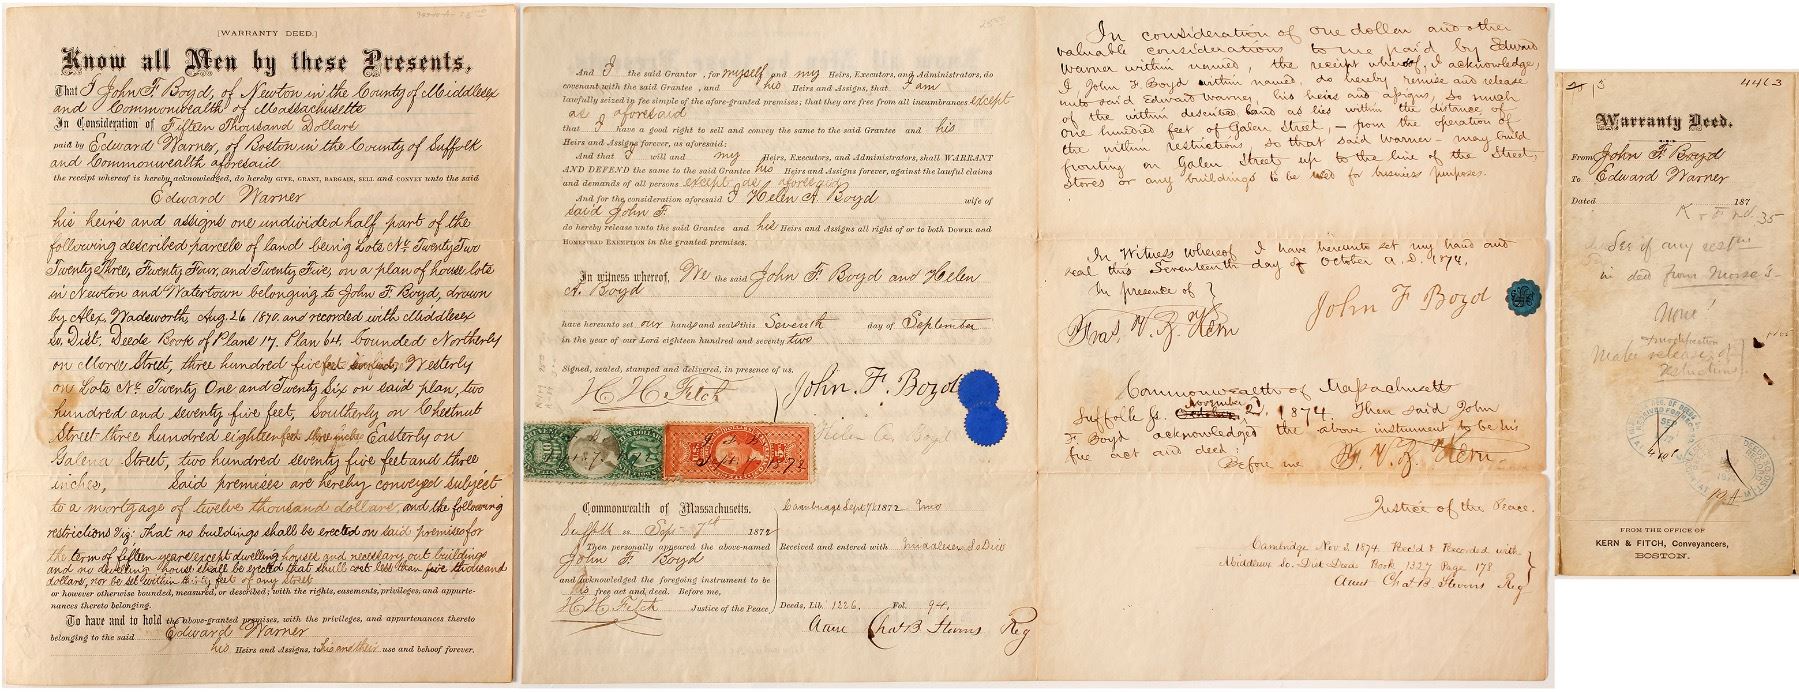 [WARRANTY DEED.]
Know all Men by these Presents,
That I John F. Boyd, of Newton in the County of Middlesex
and Commonwealth of Massachusetts
In Consideration of Fifteen Thousand Dollars
paid by Edward Warner, of Boston in the County of Suffolk
and Commonwealth aforesaid
the receipt whereof is hereby acknowledged, do hereby GIVE, GRANT, BARGAIN, SELL and CONVEY unto the said
Edward Warner
his heirs and assigns one undivided half part of the
following described parcels of land being Lots Nos. Twenty Two
Twenty Three, Twenty Four, and Twenty Five, on a plan of house lots
in Newton and Watertown belonging to John F. Boyd, drawn
by Alex. Wadsworth, Aug. 26 1870. and recorded with Middlesex
So. Dist. Deeds Book of Plans 17. Plan 64. bounded Northerly
on Morse Street, three hundred five feet six inches, Westerly
on Lots Nos. Twenty One and Twenty Six on said plan, two
hundred and seventy five feet, Southerly on Chestnut
Street three hundred eighteen feet three inches Easterly on
Galena Street, two hundred seventy five feet and three
inches, Said premises are hereby conveyed subject
to a mortgage of twelve thousand dollars, and the following
restrictions Viz: That no buildings shall be erected on said premises for
the term of fifteen years except dwelling houses and necessary out buildings
and no dwelling house shall be erected that shall cost less than five thousand
dollars, nor be set within thirty feet of any Street
or however otherwise bounded, measured, or described; with the rights, easements, privileges, and appurte-
nances thereto belonging.
To have and to hold the above-granted premises, with the privileges, and appurtenances thereto
belonging to the said Edward Warner
his Heirs and Assigns, to his and their use and behoof forever.
And I the said Grantor, for myself and my Heirs, Executors, and Administrators, do
covenant with the said Grantee, and his Heirs and Assigns, that I am
lawfully seized in fee simple of the afore-granted premises; that they are free from all incumbrances except
as aforesaid
that I have a good right to sell and convey the same to the said Grantee and his
Heirs and Assigns forever, as aforesaid;
And that I will and my Heirs, Executors, and Administrators, shall WARRANT
AND DEFEND the same to the said Grantee his Heirs and Assigns forever, against the lawful claims
and demands of all persons except as aforesaid
And for the consideration aforesaid I Helen A. Boyd wife of
said John F.
do hereby release unto the said Grantee and his Heirs and Assigns all right of or to both DOWER and
HOMESTEAD EXEMPTION in the granted premises.
In witness whereof, We the said John F Boyd and Helen
A. Boyd
have hereunto set our hands and seals this Seventh day of September
in the year of our Lord eighteen hundred and seventy two
Signed, sealed, stamped and delivered, in presence of us,
H. H. Fitch
John. F. Boyd
Helen A. Boyd
Commonwealth of Massachusetts.
Suffolk ss. Sept 7th 1872
Then personally appeared the above-named
John F. Boyd
and acknowledged the foregoing instrument to be
his free act and deed. Before me,
H H Fitch Justice of the Peace
Cambridge Sept 7/1872
Received and entered with Middlesex So Dist
Deeds, Lib. 1226. Fol. 94.
Chas B. Stevens Reg
In consideration of one dollar and other
valuable considerations to me paid by Edward
Warner within named, the receipt whereof, I acknowledge,
I, John F. Boyd within named, do hereby remise and release
unto said Edward Warner, his heirs and assigns, so much
of the within described land as lies within the distance of
one hundred feet of Galen Street, – from the operation of
the within restrictions, so that said Warner – may build
fronting on Galen Street up to the line of the Street,
Stores or any buildings to be used for business purposes.
In Witness whereof I have hereunto set my hand and
seal this Seventeenth day of October A.D. 1874.
In presence of }
John F Boyd
Commonwealth of Massachusetts
Suffolk ss. November 2d. 1874. Then said John
F. Boyd acknowledged the above instrument to be his
free act and deed:
Before me
Justice of the Peace.
Cambridge Nov 3. 1874 Rec'd & Recorded with
Middlesex So. Dist Deeds Book 1327 Page 178
Attest Chas B Stevens Reg
4463
Warranty Deed.
From John F. Boyd
To Edward Warner
Dated 187
See if any
in deed from Morse
None!
modification
Make release of
restrictions.
FROM THE OFFICE OF
KERN & FITCH, Conveyancers,
BOSTON.